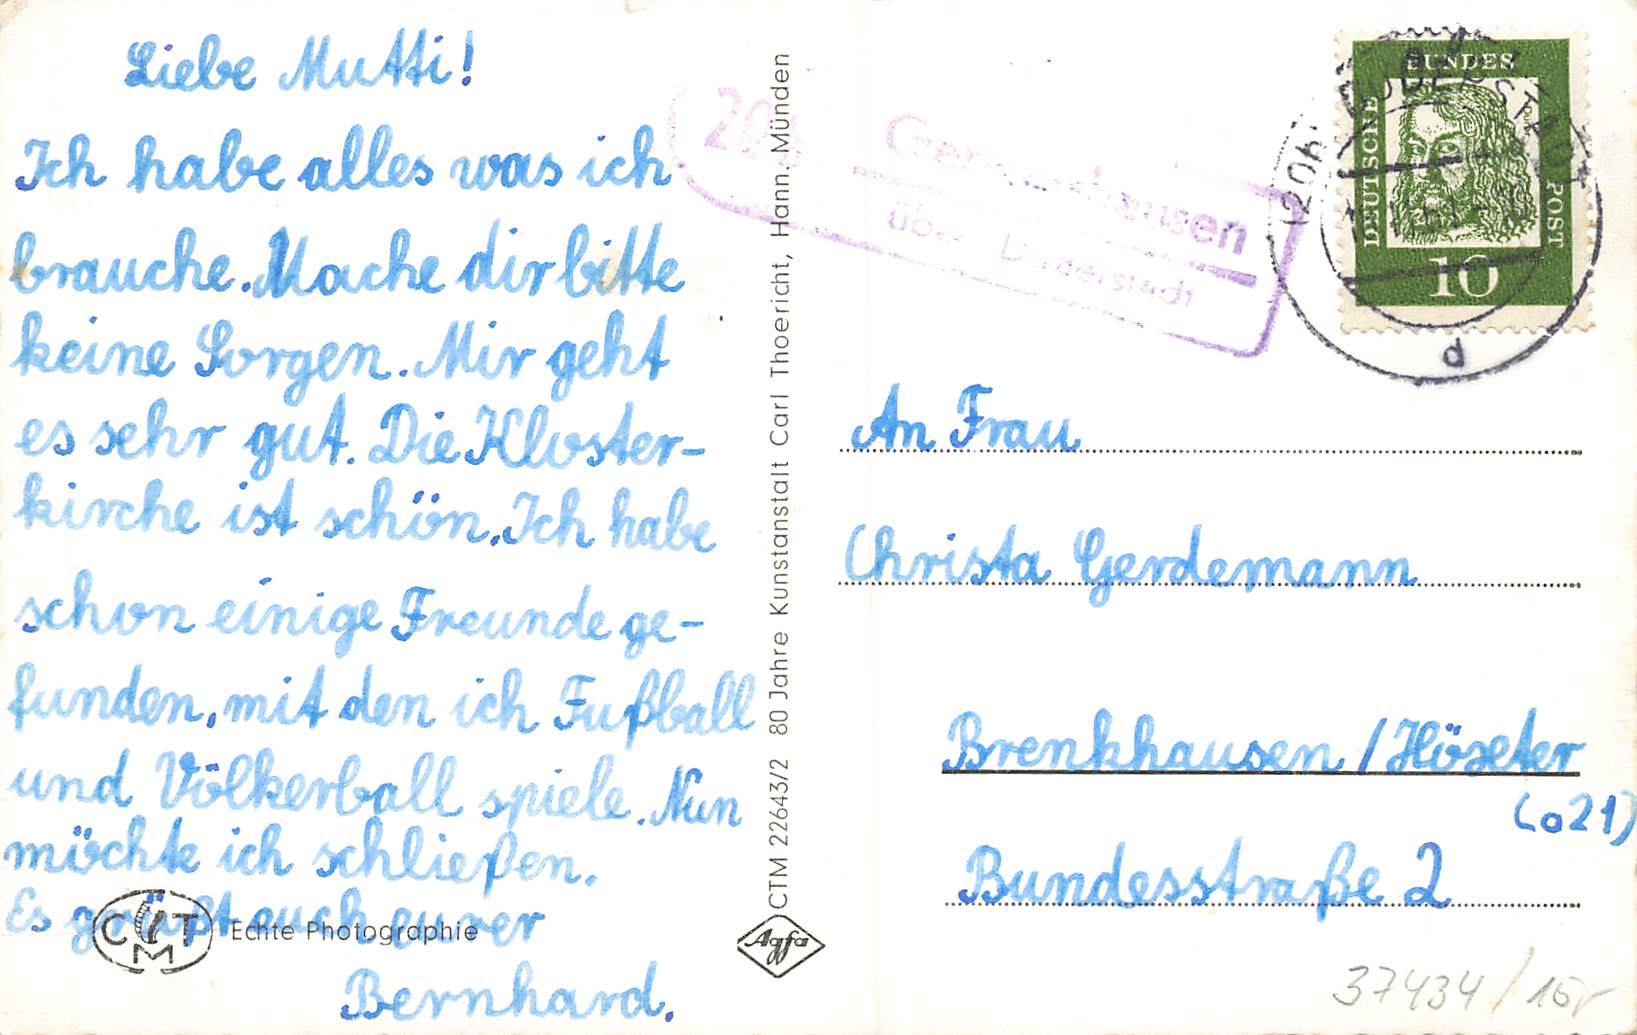 Liebe Mutti!
Ich habe alles was ich
brauche. Mache dir bitte
keine Sorgen. Mir geht
es sehr gut. Die Kloster-
kirche ist schön. Ich habe
schon einige Freunde ge-
funden, mit den ich Fußball
und Völkerball spiele. Nun
möchte ich schließen.
Es grüßt euch eurer
Bernhard.
CTM Echte Photographie
CTM 22643/2 80 Jahre Kunstanstalt Carl Thoericht, Hann. Münden
Agfa
Germershausen
über Duderstadt
BUNDES
DEUTSCHE
POST
10
d
An Frau
Christa Gerdemann
Brenkhausen / Höxeter
(021)
Bundesstraße 2
37434/15,-